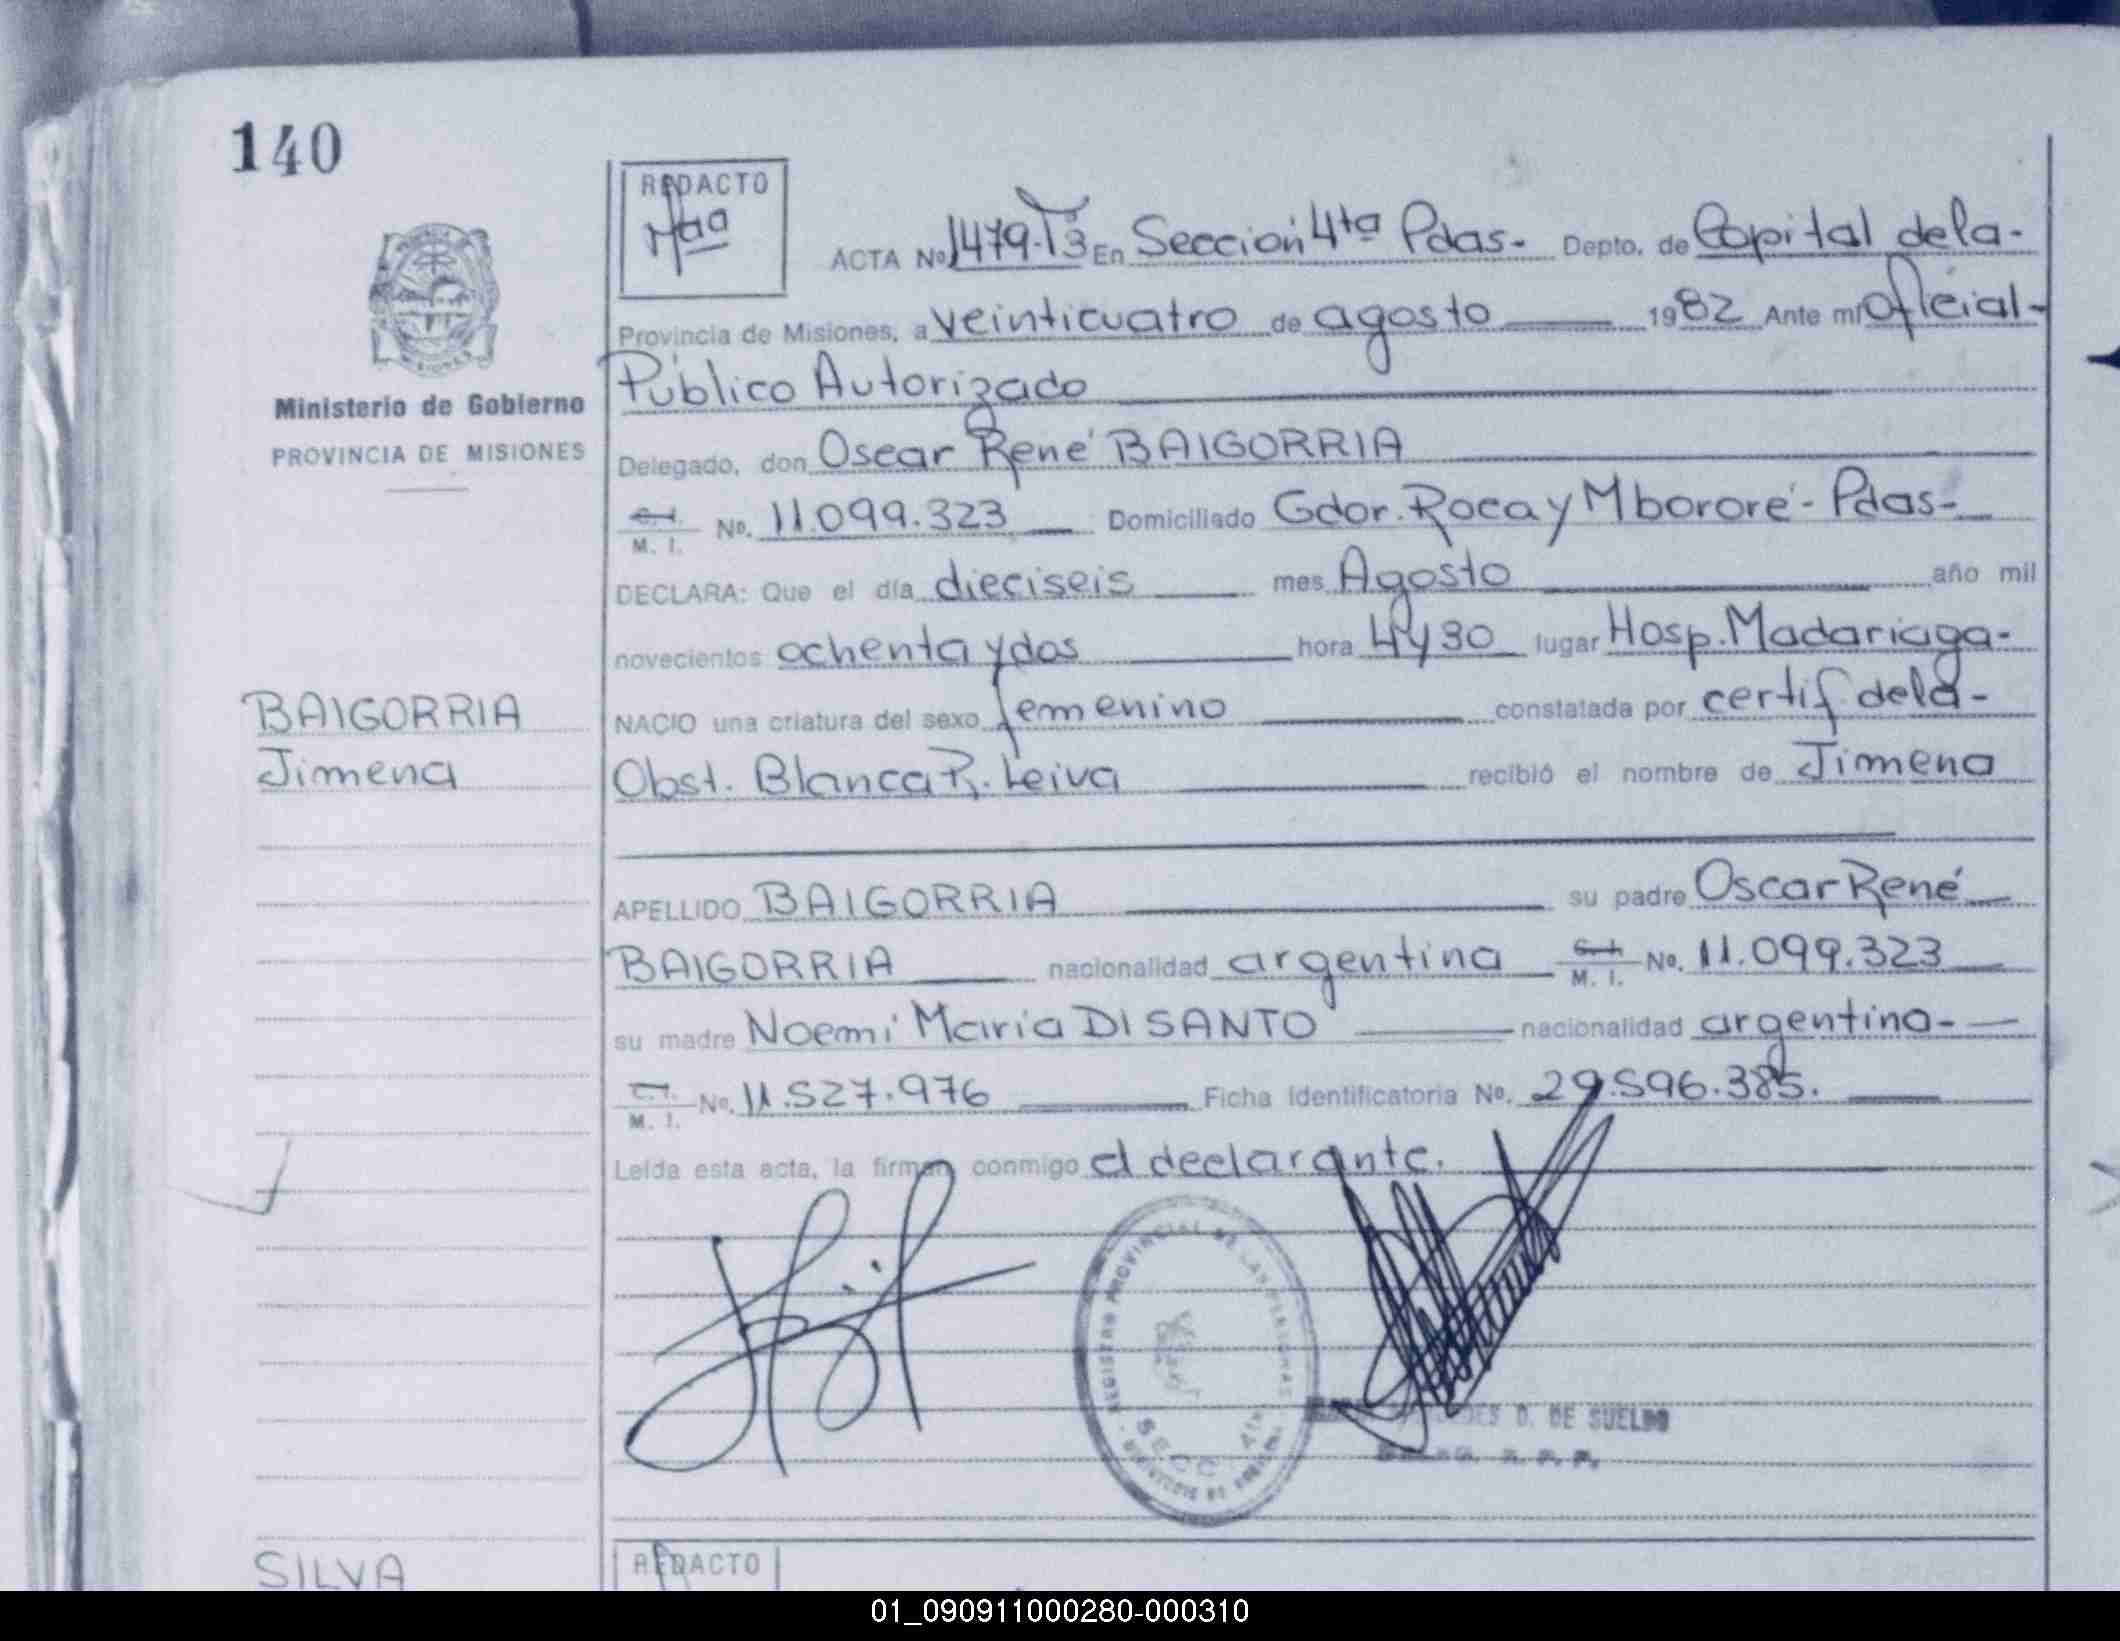 140
REDACTO
ACTA Nº 1479-T3 En Sección 4ta Pdas- Depto. de Capital de la-
Provincia de Misiones, a veinticuatro de agosto 1982 Ante mi Oficial-
Público Autorizado
Ministerio de Gobierno
PROVINCIA DE MISIONES
Delegado, don Oscar René BAIGORRIA
C.I. M. I. No. 11.099.323 Domiciliado Gdor. Roca y Mbororé- Pdas-
DECLARA: Que el día dieciseis mes Agosto año mil
novecientos ochenta y dos hora 4y30 lugar Hosp. Madariaga-
BAIGORRIA
Jimena
NACIO una criatura del sexo femenino constatada por certif de la-
Obst. Blanca R. Leiva recibió el nombre de Jimena
APELLIDO BAIGORRIA su padre Oscar René
BAIGORRIA nacionalidad argentina C.I. M. I. No. 11.099.323
su madre Noemí María DI SANTO nacionalidad argentina-
C.I. M. I. No. 11.527.976 Ficha Identificatoria No. 29.596.385.
Leída esta acta, la firman conmigo el declarante.
REGISTRO PROVINCIAL DE LAS PERSONAS
SECC. 4ta
D. DE SUELDO
SILVA
REDACTO
01_090911000280-000310